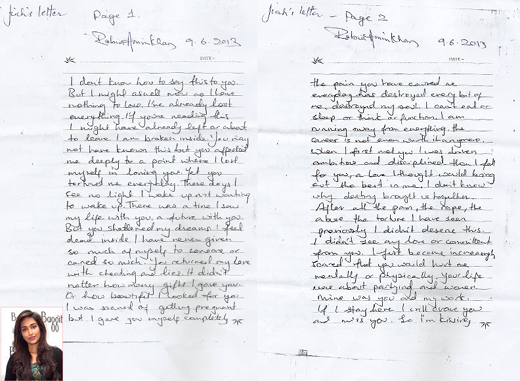 Jiah's letter
Page 1.
9.6.2013
DATE:
I dont know how to say this to you
But I might aswell now as I have
nothing to lose. I've already lost
everything. If you're reading this
I might have already left or about
to leave. I am broken inside. You may
not have known this but you affected
me deeply to a point where I lost
myself in loving you. Yet you
tortured me everyday. These days I
see no light I wake up not wanting
to wake up. There was a time I saw
my life with you, a future with you.
But you shattered my dreams. I feel
dead inside. I have never given
so much of myself to someone or
cared so much. You returned my love
with cheating and lies. It didn't
matter how many gifts I gave you.
Or how beautiful I looked for you.
I was scared of getting pregnant
but I gave you myself completely
Jiah's letter - Page 2
9.6.2013
DATE:
the pain you have caused me
everyday has destroyed every bit of
me, destroyed my soul. I cant eat or
sleep or think or function. I am
running away from everything. the
career is not even worth it anymore.
When I first met you I was driven,
ambitious and disciplined. Then I fell
for you, a love I thought would bring
out the best in me. I dont know
why destiny brought us together.
After all the pain, the rape, the
abuse, the torture I have seen
previously I didn't deserve this.
I didn't see any love or commitment
from you. I just became increasingly
scared that you would hurt me
mentally or physically. Your life
was about partying and women.
Mine was you and my work.
If I stay here I will crave you
and miss you. So I'm kissing
Baggit